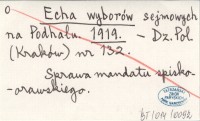 o
Echa wyborów sejmowych
na Podhalu 1919. – Dz. Pol.
(Kraków) nr 132.
Sprawa mandatu spisko-
orawskiego.